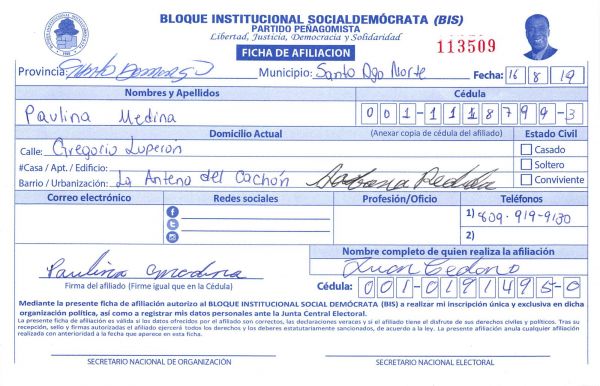 BLOQUE INSTITUCIONAL SOCIALDEMÓCRATA (BIS)
PARTIDO PEÑAGOMISTA
Libertad, Justicia, Democracia y Solidaridad
FICHA DE AFILIACION
113509
Provincia: Santo Domingo Municipio: Santo Dgo Norte Fecha: 16 8 19
Nombres y Apellidos Cédula
Paulina Medina 001-1118799-3
Domicilio Actual (Anexar copia de cédula del afiliado) Estado Civil
Calle: Gregorio Luperon Casado
#Casa / Apt. / Edificio: Soltero
Barrio / Urbanización: La Antena del Cachón Sabana Perdida Conviviente
Correo electrónico Redes sociales Profesión/Oficio Teléfonos
1) 809-919-9130
2)
Nombre completo de quien realiza la afiliación
Paulina Medina Juan Cedano
Firma del afiliado (Firme igual que en la Cédula) Cédula: 001-0191495-0
Mediante la presente ficha de afiliación autorizo al BLOQUE INSTITUCIONAL SOCIAL DEMÓCRATA (BIS) a realizar mi inscripción única y exclusiva en dicha
organización política, así como a registrar mis datos personales ante la Junta Central Electoral.
La presente ficha de afiliación es válida si los datos ofrecidos por el afiliado son correctos, las declaraciones veraces y si el afiliado tiene el disfrute de sus derechos civiles y políticos. Tras su
recepción, sello y firmas autorizadas el afiliado ejercerá todos los derechos y los deberes estatutariamente sancionados, de acuerdo a la ley. La presente afiliación anula cualquier afiliación
realizada con anterioridad a la fecha que aparece en esta ficha.
SECRETARIO NACIONAL DE ORGANIZACIÓN SECRETARIO NACIONAL ELECTORAL